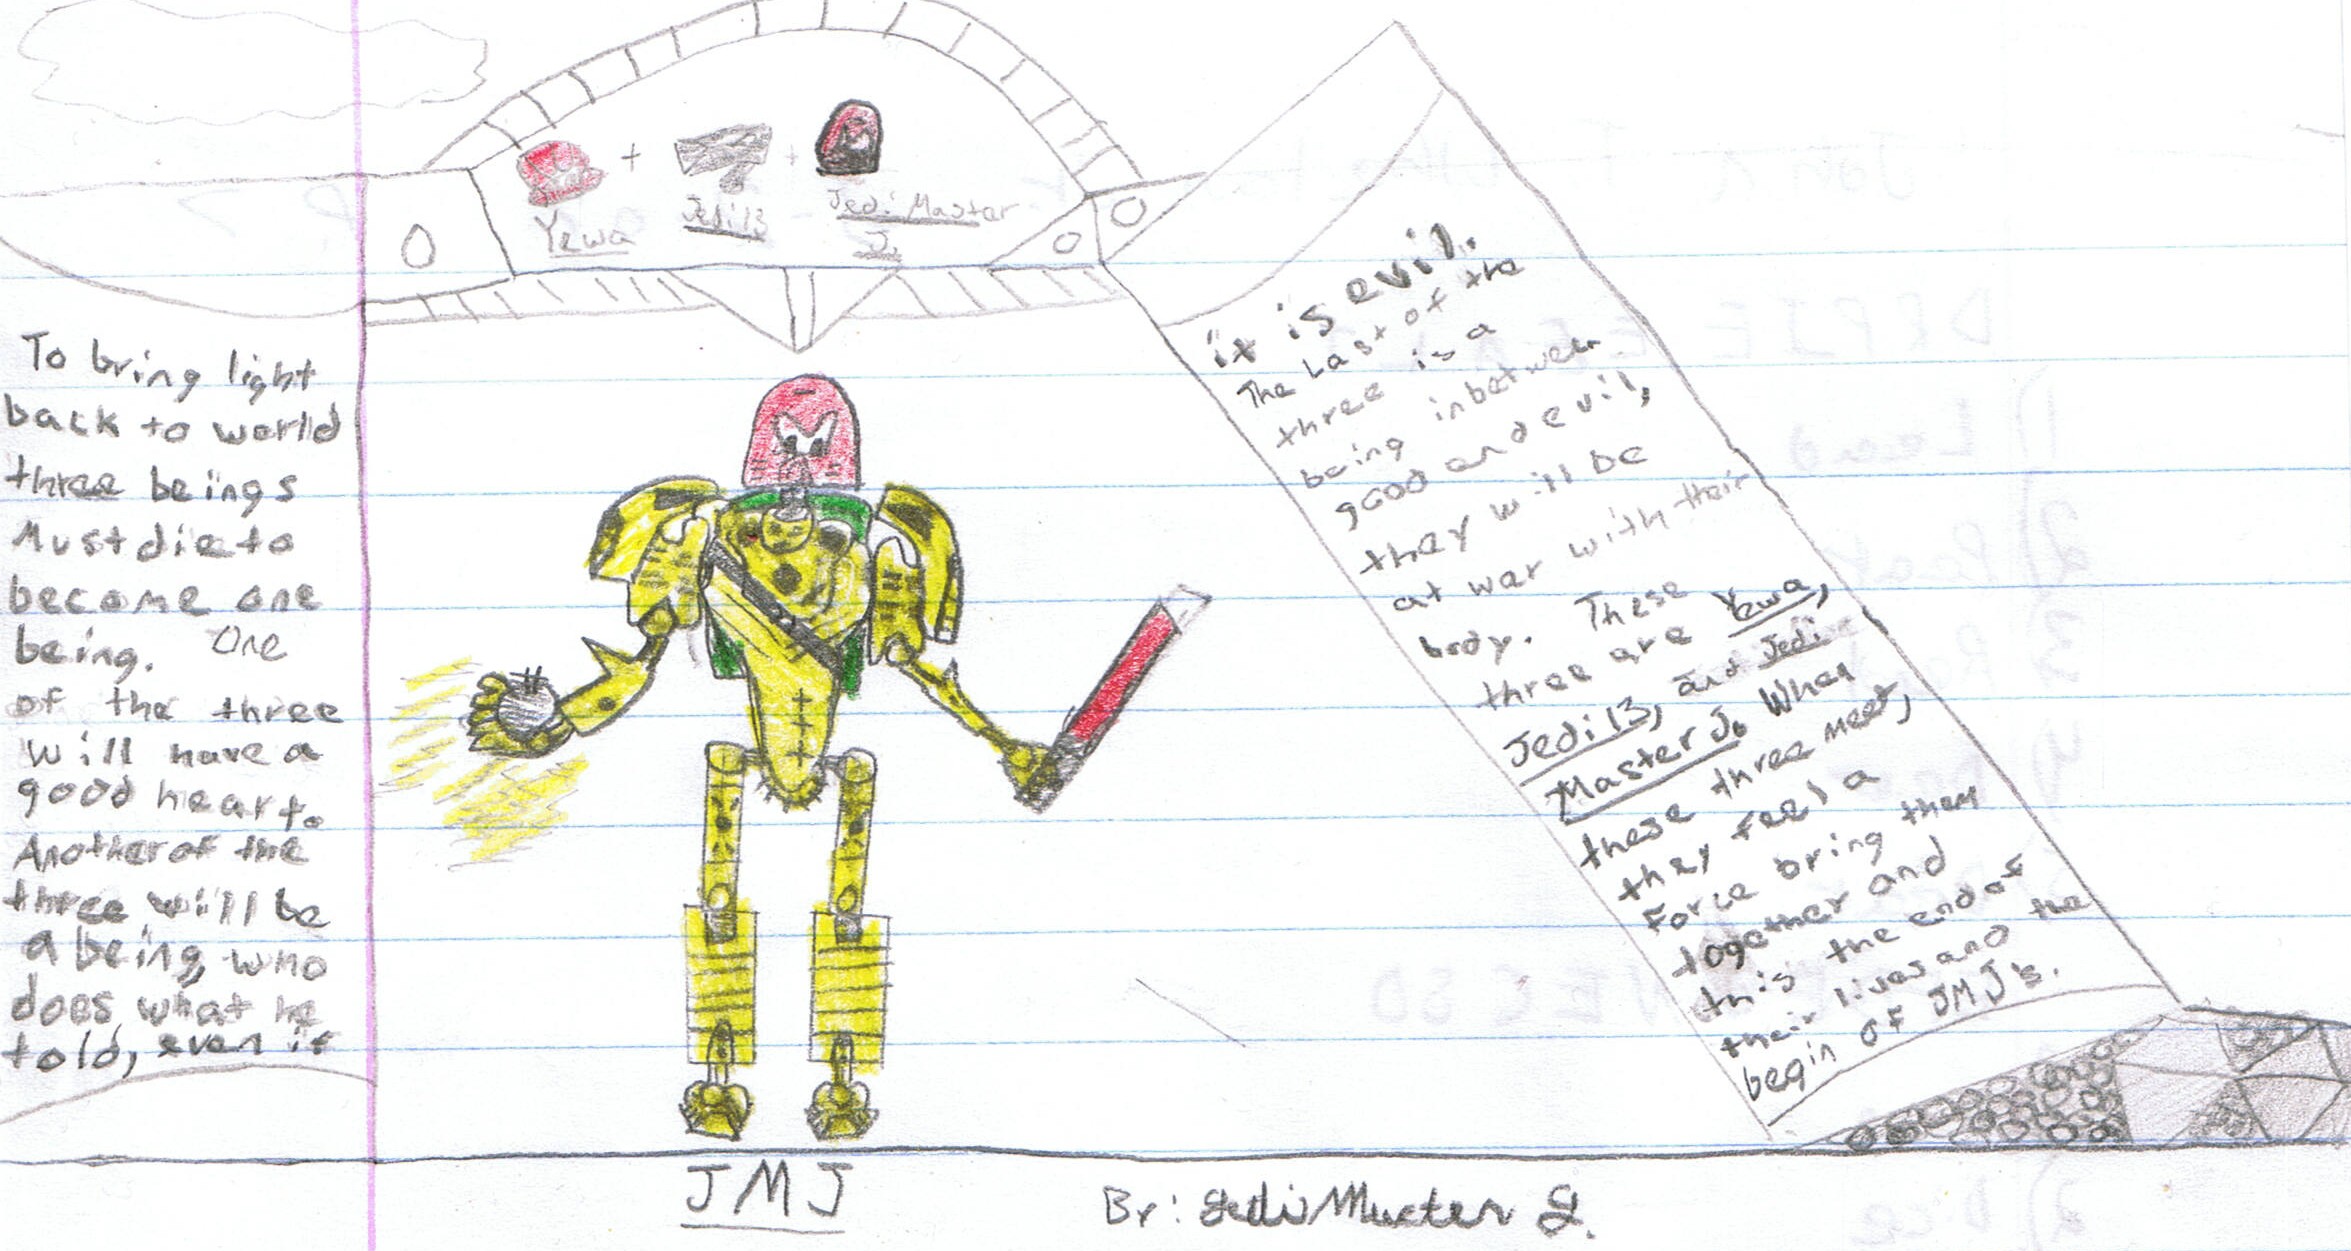 Yewa + Jedi13 + Jedi Master
J.
To bring light
back to world
three beings
Must die to
become one
being. One
of the three
will have a
good heart.
Another of the
three will be
a being who
does what he
told, even if
it is evil.
The Last of the
three is a
being inbetween
good and evil,
they will be
at war with their
body. These
three are Yewa,
Jedi13, and Jedi
Master J. When
these three meet,
they feel a
Force bring them
together and
this the end of
their lives and the
begin of JMJ's.
JMJ
By: Jedi Master J.